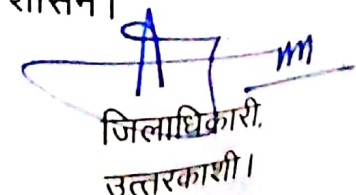 शासन।
जिलाधिकारी,
उत्तरकाशी।